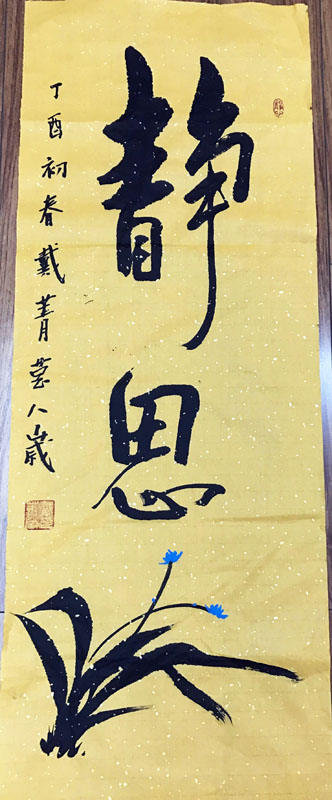 静思
丁酉初春戴菁菡八歲